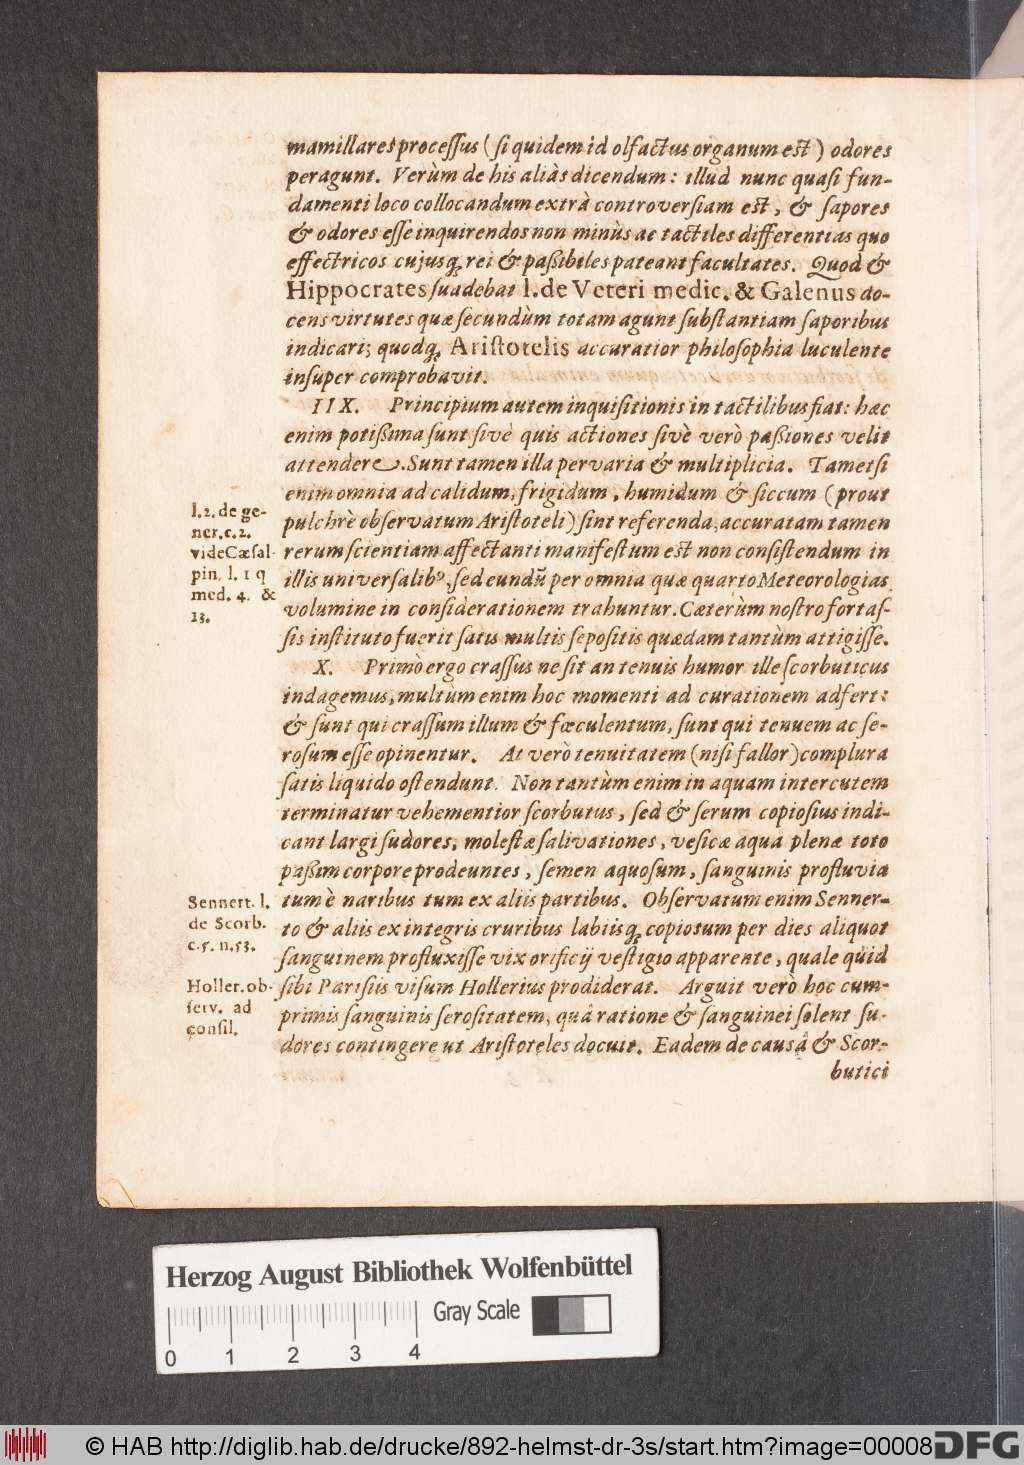 mamillares processus (si quidem id olfactus organum est) odores
peragunt. Verùm de his aliàs dicendum: illud nunc quasi fun-
damenti loco collocandum extrà controversiam est, & sapores
& odores esse inquirendos non minùs ac tactiles differentias quo
effectricos cujusq́, rei & paßibiles pateant facultates. Quod &
Hippocrates suadebat l. de Veteri medic. & Galenus do-
cens virtutes quæ secundùm totam agunt substantiam saporibus
indicari; quodq́, Aristotelis accuratior philosophia luculente
insuper comprobavit.
IIX. Principium autem inquisitionis in tactilibus fiat: hæc
enim potißima sunt sivè quis actiones sivè verò paßiones velit
attendere. Sunt tamen illa pervaria & multiplicia. Tametsi
enim omnia ad calidum, frigidum, humidum & siccum (prout
pulchrè observatum Aristoteli) sint referenda, accuratam tamen
rerum scientiam affectanti manifestum est non consistendum in
illis universalibꝰ, sed eundũ per omnia quæ quarto Meteorologias
volumine in considerationem trahuntur. Cæterùm nostro fortas-
sis instituto fuerit satis multis sepositis quædam tantùm attigisse.
l. 2. de ge-
ner. c. 2.
vide Cæsal-
pin. l. 1 q
med. 4. &
13.
X. Primò ergo crassus ne sit an tenuis humor ille scorbuticus
indagemus, multùm enim hoc momenti ad curationem adfert:
& sunt qui crassum illum & fœculentum, sunt qui tenuem ac se-
rosum esse opinentur. At verò tenuitatem (nisi fallor) complura
satis liquido ostendunt. Non tantùm enim in aquam intercutem
terminatur vehementior scorbutus, sed & serum copiosius indi-
cant largi sudores, molestæ salivationes, vesicæ aquâ plenæ toto
paßim corpore prodeuntes, semen aquosum, sanguinis profluvia
tum è naribus tum ex aliis partibus. Observatum enim Senner-
to & aliis ex integris cruribus labiisq́, copiosum per dies aliquot
sanguinem profluxisse vix orificij vestigio apparente, quale quid
sibi Parisiis visum Hollerius prodiderat. Arguit verò hoc cum-
primis sanguinis serositatem, quâ ratione & sanguinei solent su-
dores contingere ut Aristoteles docuit. Eadem de causâ & Scor-
butici
Sennert. l.
de Scorb.
c. 5. n. 53.
Holler. ob-
serv. ad
consil.
Herzog August Bibliothek Wolfenbüttel
Gray Scale
0 1 2 3 4
© HAB http://diglib.hab.de/drucke/892-helmst-dr-3s/start.htm?image=00008
DFG